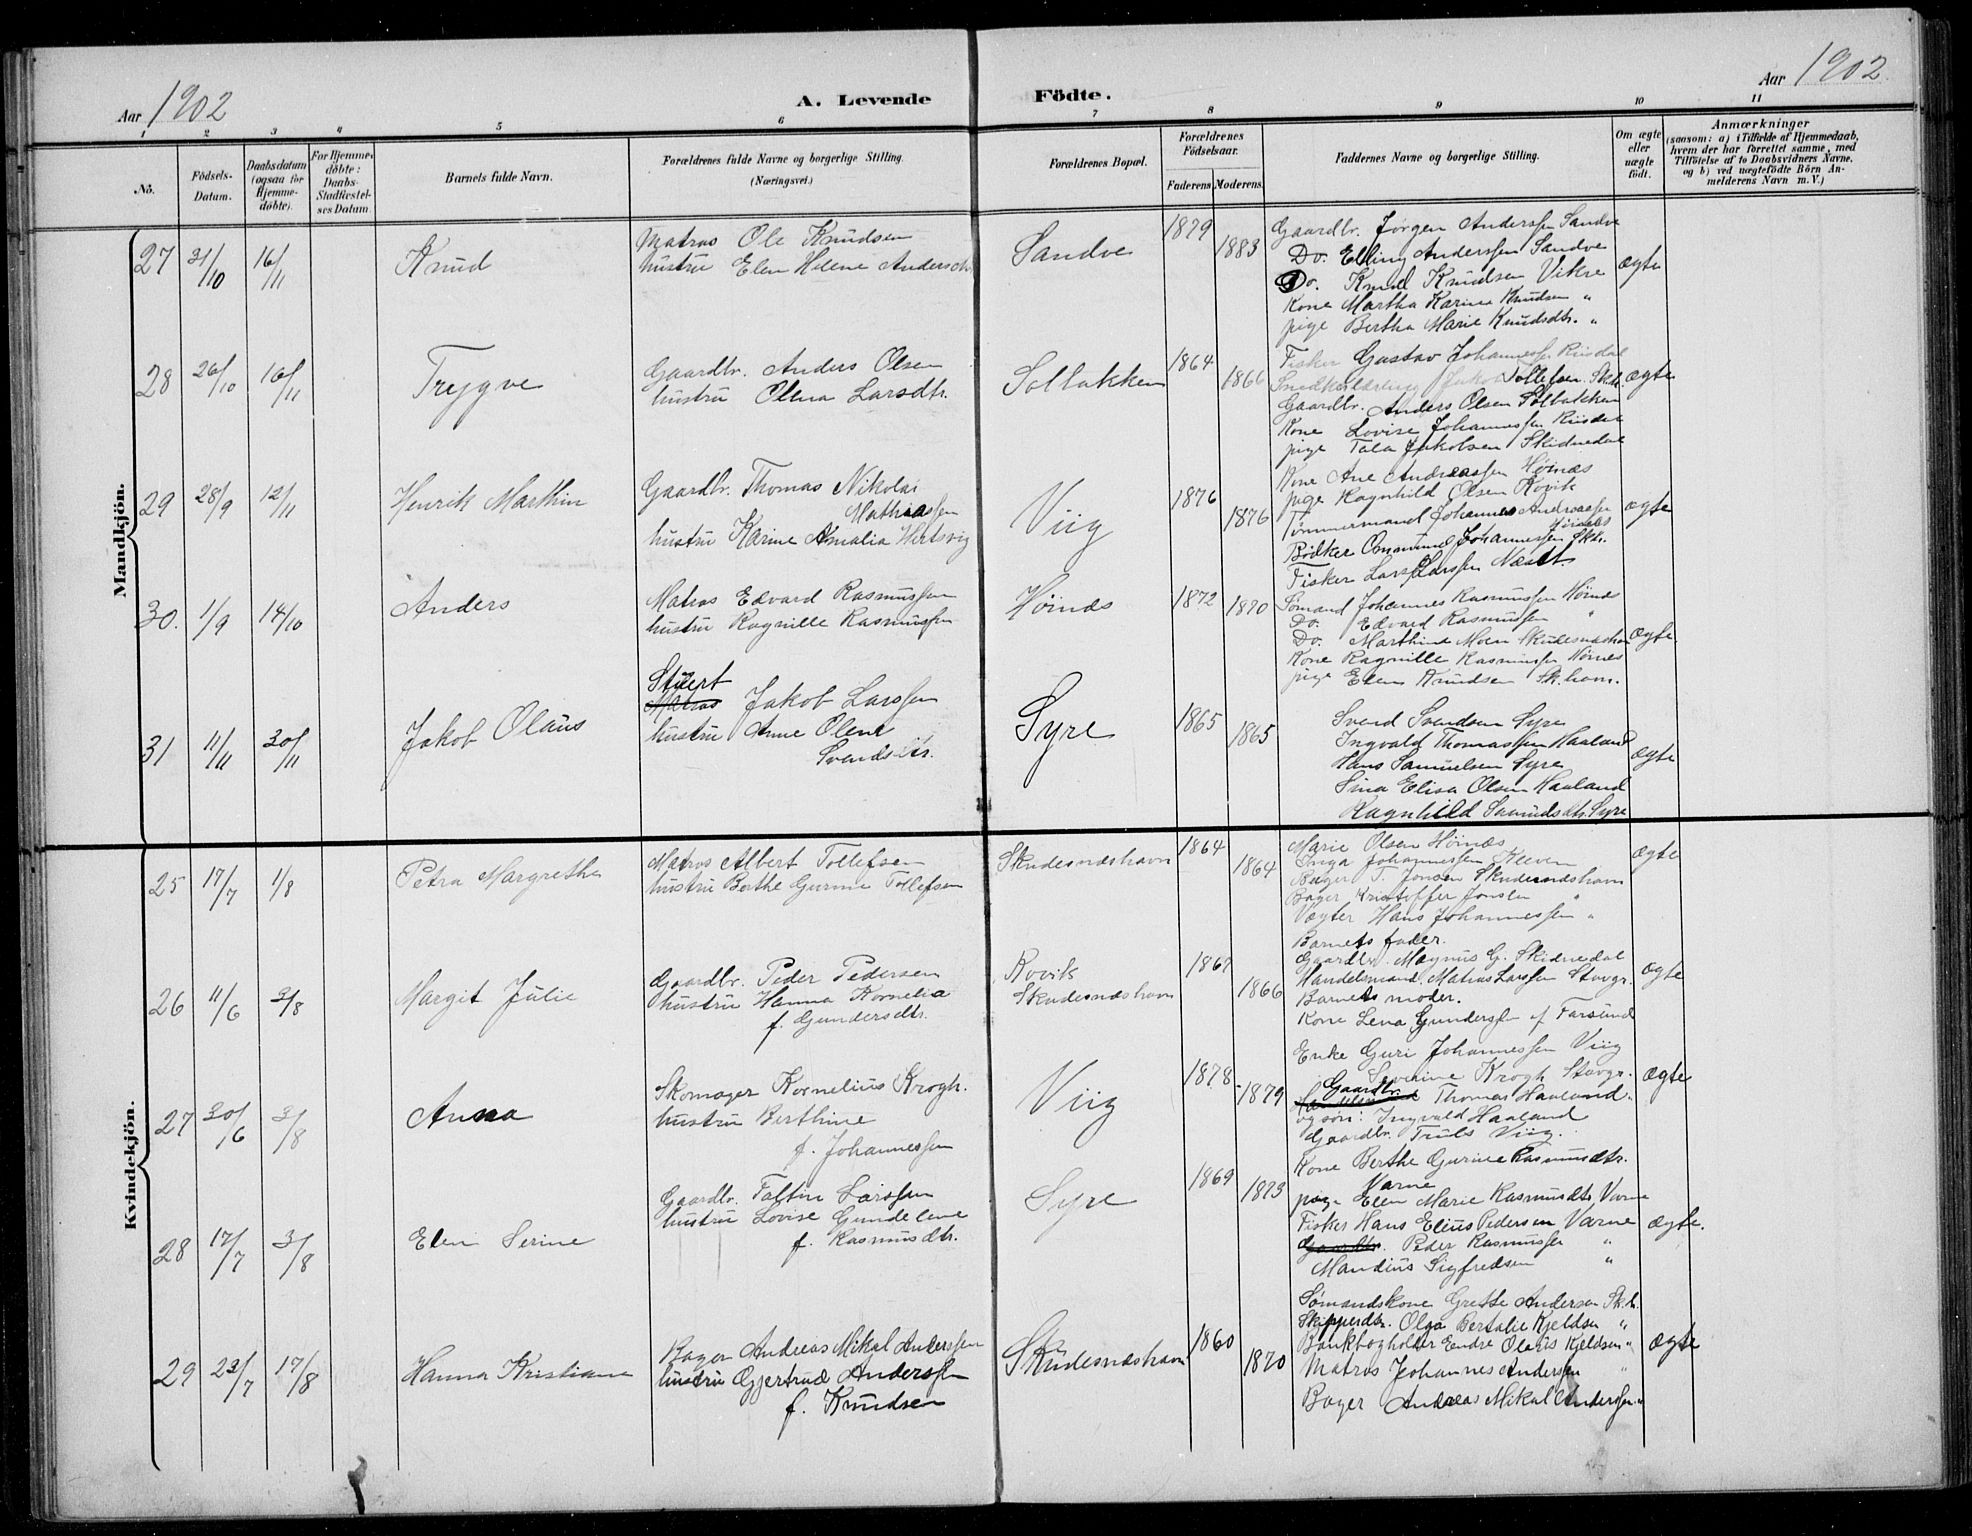 Aar 1902
A. Levende Födte.
Aar 1902.
1 2 3 4 5 6 7 8 9 10 11
No.
Födsels-Datum.
Daabsdatum (ogsaa for Hjemme-döbte).
For Hjemme-döbte: Daabs-Stadfæstel-ses Datum
Barnets fulde Navn.
Forældrenes fulde Navne og borgerlige Stilling. (Næringsvei.)
Forældrenes Bopæl.
Forældrenes Födselsaar.
Faderens Moderens.
Faddernes Navne og borgerlige Stilling.
Om ægte eller uægte födt.
Anmærkninger
(saasom: a) i Tilfælde af Hjemmedaab, hvem der har forrettet samme, med Tilföielse af to Daabsvidners Navne, og b) ved uægtefödte Börn An-melderens Navn m. V.)
Mandkjön.
27 31/10 16/11 Knud
Matros Ole Knudsen
hustru Elen Helene Andersdtr
Sandve 1879 1883
Gaardbr. Jørgen Anderssen Sandve
Do. Elling Anderssen Sandve
Do. Knud Knudsen Vikre
Kone Martha Karina Knudsen "
pige Bertha Marie Knudsdtr. "
ægte
28 26/10 16/11 Trygve
Gaardbr. Anders Olsen
hustru Olena Larsdtr.
Solbakken 1864 1866
Fisker Gustav Johannessen Riisdal
Snedkerlærling Jakob Tollefsen Skh.
Gaardbr. Anders Olsen Solbakken
Kone Lovise Johannessen Riisdal
pige Tala Jakobsen Skidnedal
ægte
29 28/9 12/11 Henrik Marthin
Gaardbr. Thomas Nikolai
Mathiassen
hustru Karine Amalia Hertsvig
Viig 1876 1876
Kone Ane Andreassen Høinæs
pige Ragnhild Olsen Rovik
Tømmermand Johannes Andreassen
Høinæs
Bødker Ommund Johannessen Skh.
Fisker Lars Larssen Næst
ægte
30. 1/9 14/10 Anders
Matros Edvard Rasmussen
hustru Ragnille Rasmussen
Høinæs 1872 1870
Sømand Johannes Rasmussen Høinæs
Do. Edvard Rasmussen "
Do. Marthin Moen Skudesnæshavn
Kone Ragnille Rasmussen Hörnes
pige Elen Knudsen Sk.havn.
ægte.
31 11/11 30/11 Jakob Olaus
Stuert
Matros Jakob Larssen
hustru Anne Olene
Svendsdtr.
Syre 1865 1865
Svend Svendsen Syre
Ingvald Thomassen Haaland
Hans Samuelsen Syre
Sina Elisa Olsen Haaland
Ragnhild Samundsdtr. Syre
ægte
Kvindekjön.
25 17/7 1/8 Petra Margrethe
Matros Albert Tollefsen
hustru Berthe Gurine Tollefsen
Skudesnæshavn 1864 1864
Marie Olsen Hörnæs
Inga Johannessen Kleven
Bager T. Jonsen Skudesnæshavn
Bager Kristoffer Jonsen "
Vægter Hans Johannessen "
ægte
26 11/6 3/8 Margit Julie
Gaardbr. Peder Pedersen
hustru Hanna Kornelia
f. Gundersdtr.
Rovik
Skudesnæshavn
1867 1866
Barnets fader.
Gaardbr. Magnus G. Skidnedal
Handelsmand. Matias Larssen Stavgr.
Barnets moder.
Kone Lena Gunderssen af Farsund
ægte
27 30/6 3/8 Anna
Skomager Kornelius Krogh.
hustru Berthine
f. Johannessen
Viig 1878 1879
Enke Guri Johannessen Viig
Severine Krogh Stavgr.
Gaardbr.
Thomas Haaland.
og søn: Ingvald Haaland
Gaardbr. Truls Viig.
ægte
28 17/7 3/8 Elen Serine
Gaardbr. Faltin Larssen
hustru Lovise Gundelene
f. Rasmusdtr.
Syre 1869 1873
Kone Berthe Gurine Rasmusdtr.
Varne
pige Elen Marie Rasmusdtr. Varne
Fisker Hans Elius Pedersen Varne
Gaardbr. Peder Rasmussen "
Mandius Sigfredsen "
ægte.
29 22/7 17/8 Hanna Kristiane
Bager Andreas Mikal Anderssen
hustru Gjertrud Anderssen
f. Knudsen
Skudesnæshavn 1860 1870
Sømandskone Grethe Andersen Sk.h.
Skipperdtr. Olga Bertalie Kjeldsen "
Bankbogholder Endre Olaus Kjeldsen "
Matros Johannes Anderssen "
Bager Andreas Mikal Anderssen "
ægte